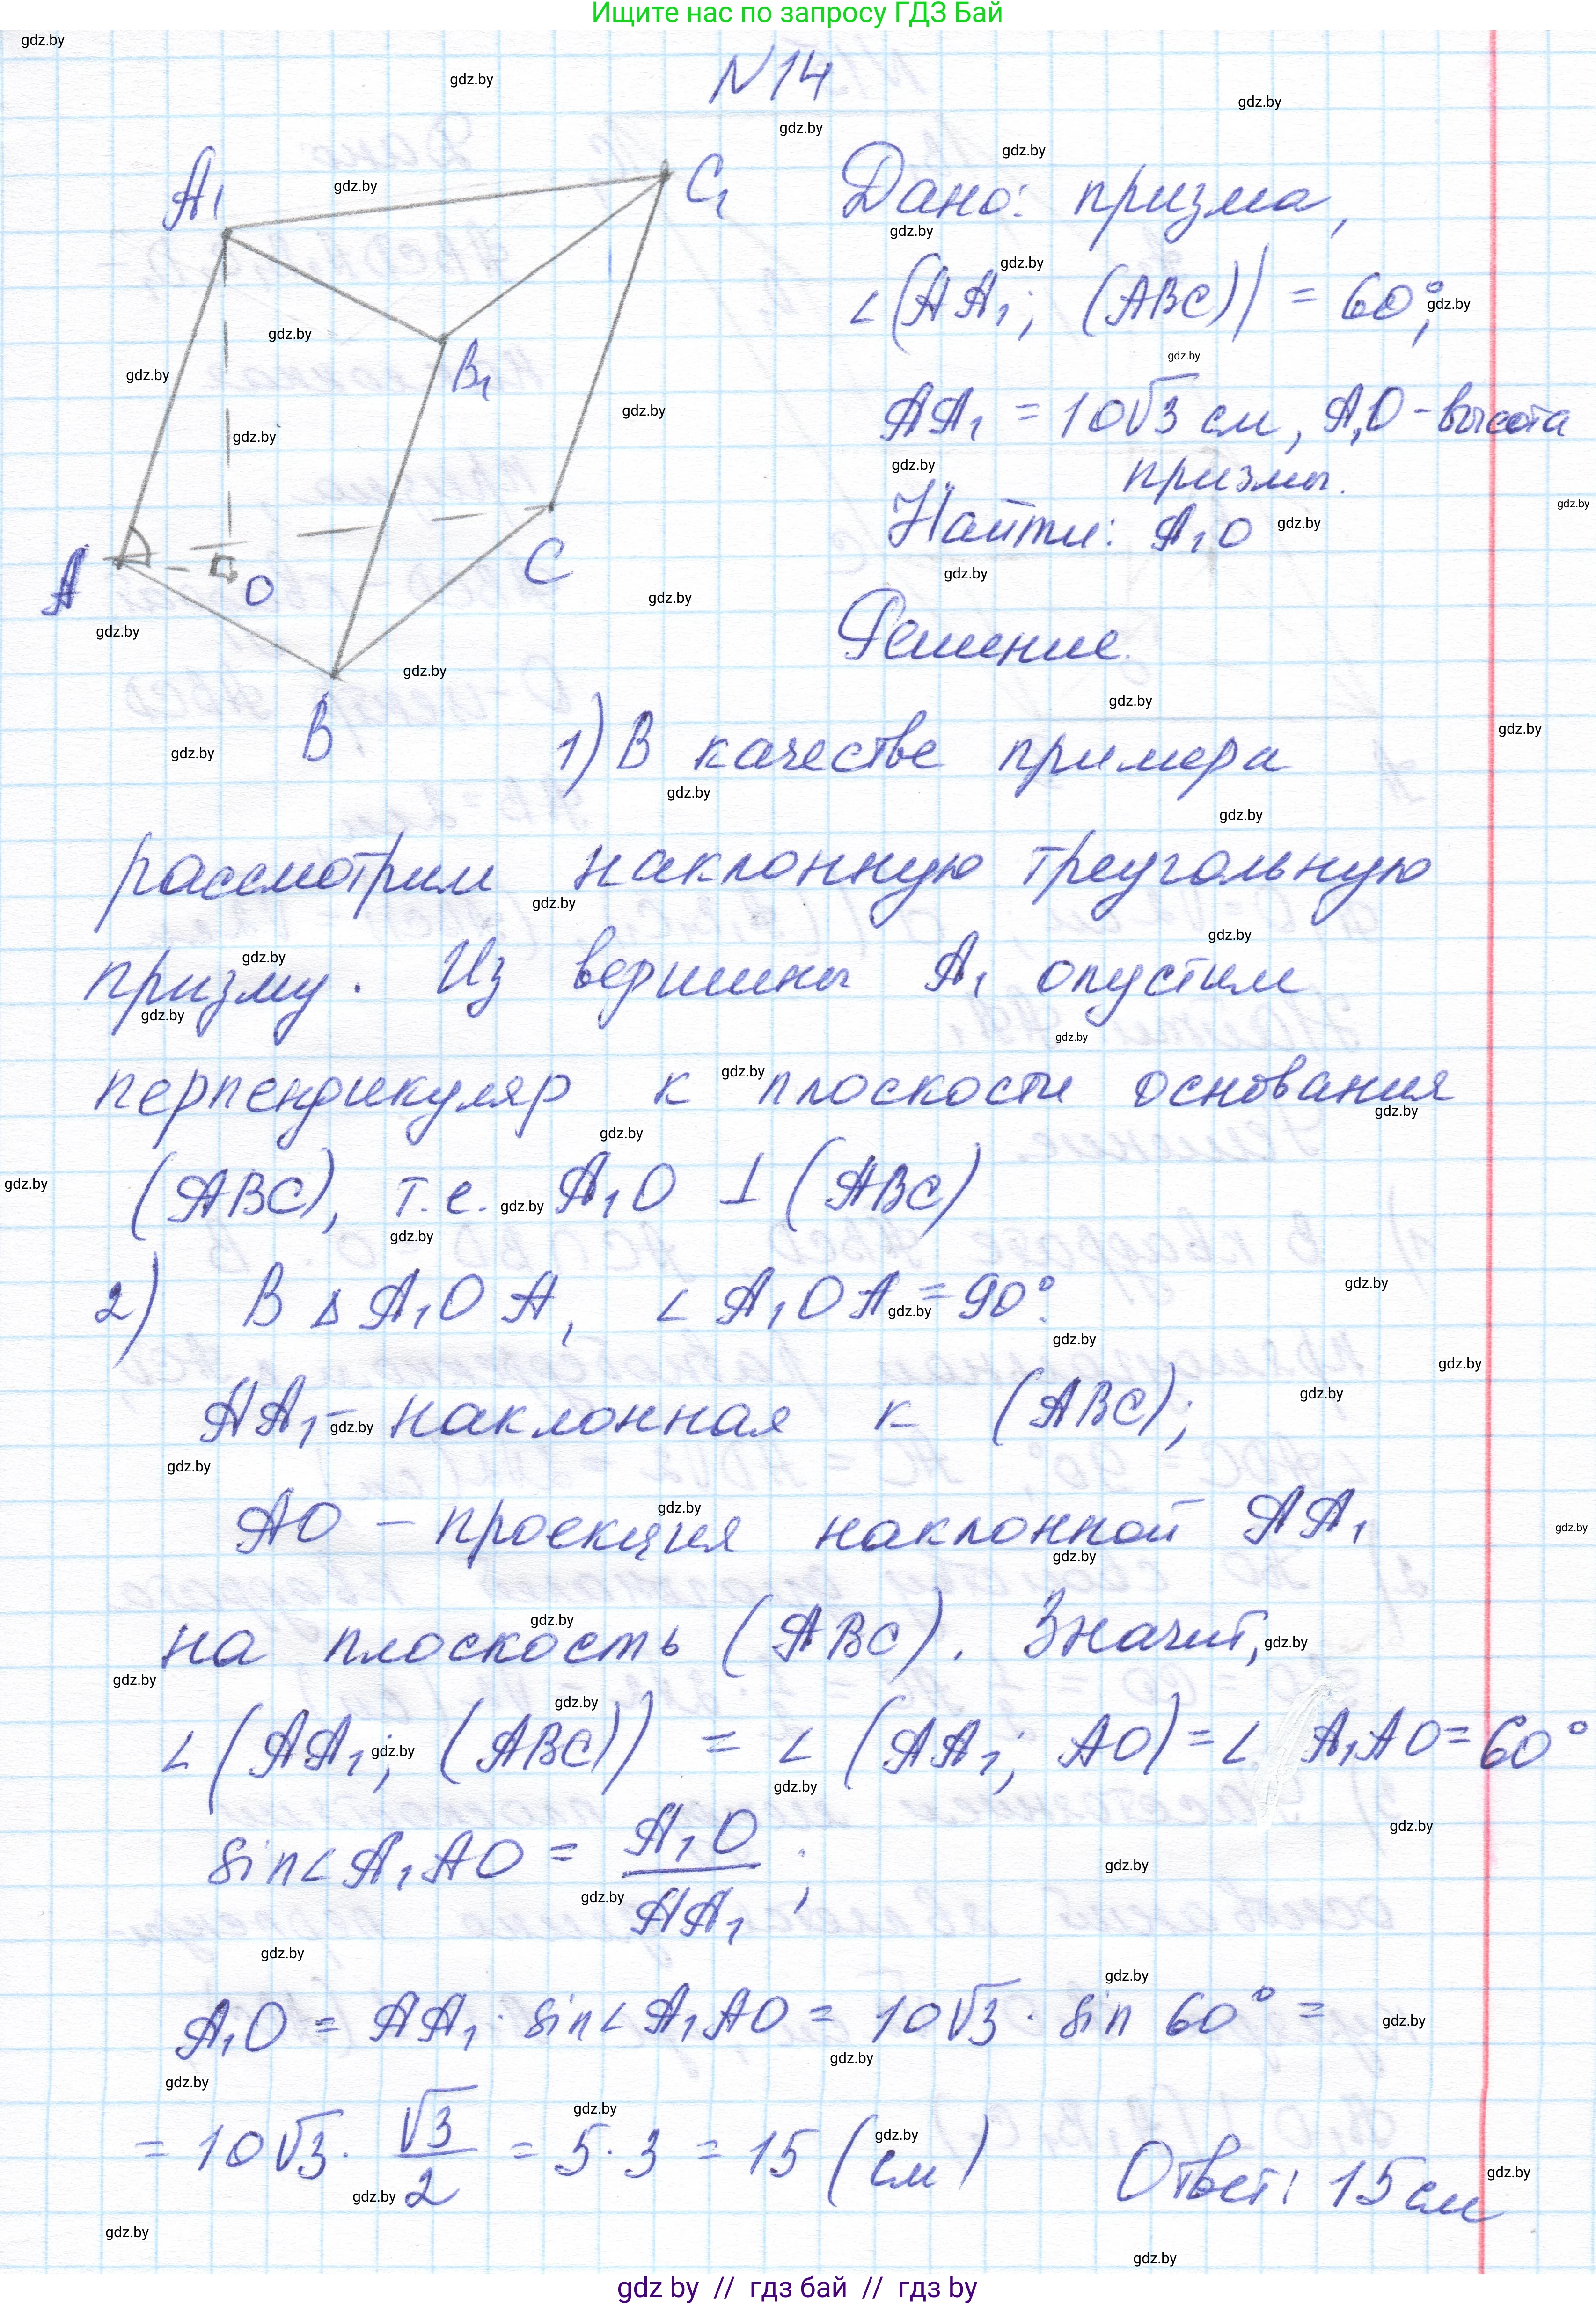 Ищите нас по запросу ГДЗ Бай
N14
A₁
C₁
B₁
A
O
C
B
Дано: призма,
∠(AA₁; (ABC)) = 60°;
AA₁ = 10√3 см, A₁O - высота
призмы.
Найти: A₁O
Решение.
1) В качестве примера
рассмотрим наклонную треугольную
призму. Из вершины A₁ опустим
перпендикуляр к плоскости основания
(ABC), т.е. A₁O ⊥ (ABC)
2) В △A₁OA, ∠A₁OA = 90°.
AA₁ - наклонная к (ABC);
AO - проекция наклонной AA₁
на плоскость (ABC). Значит,
∠(AA₁; (ABC)) = ∠(AA₁; AO) = ∠A₁AO = 60°
sin∠A₁AO = A₁O / AA₁;
A₁O = AA₁ · sin∠A₁AO = 10√3 · sin 60° =
= 10√3 · √3/2 = 5 · 3 = 15 (см) Ответ: 15 см
gdz by // гдз бай // гдз by